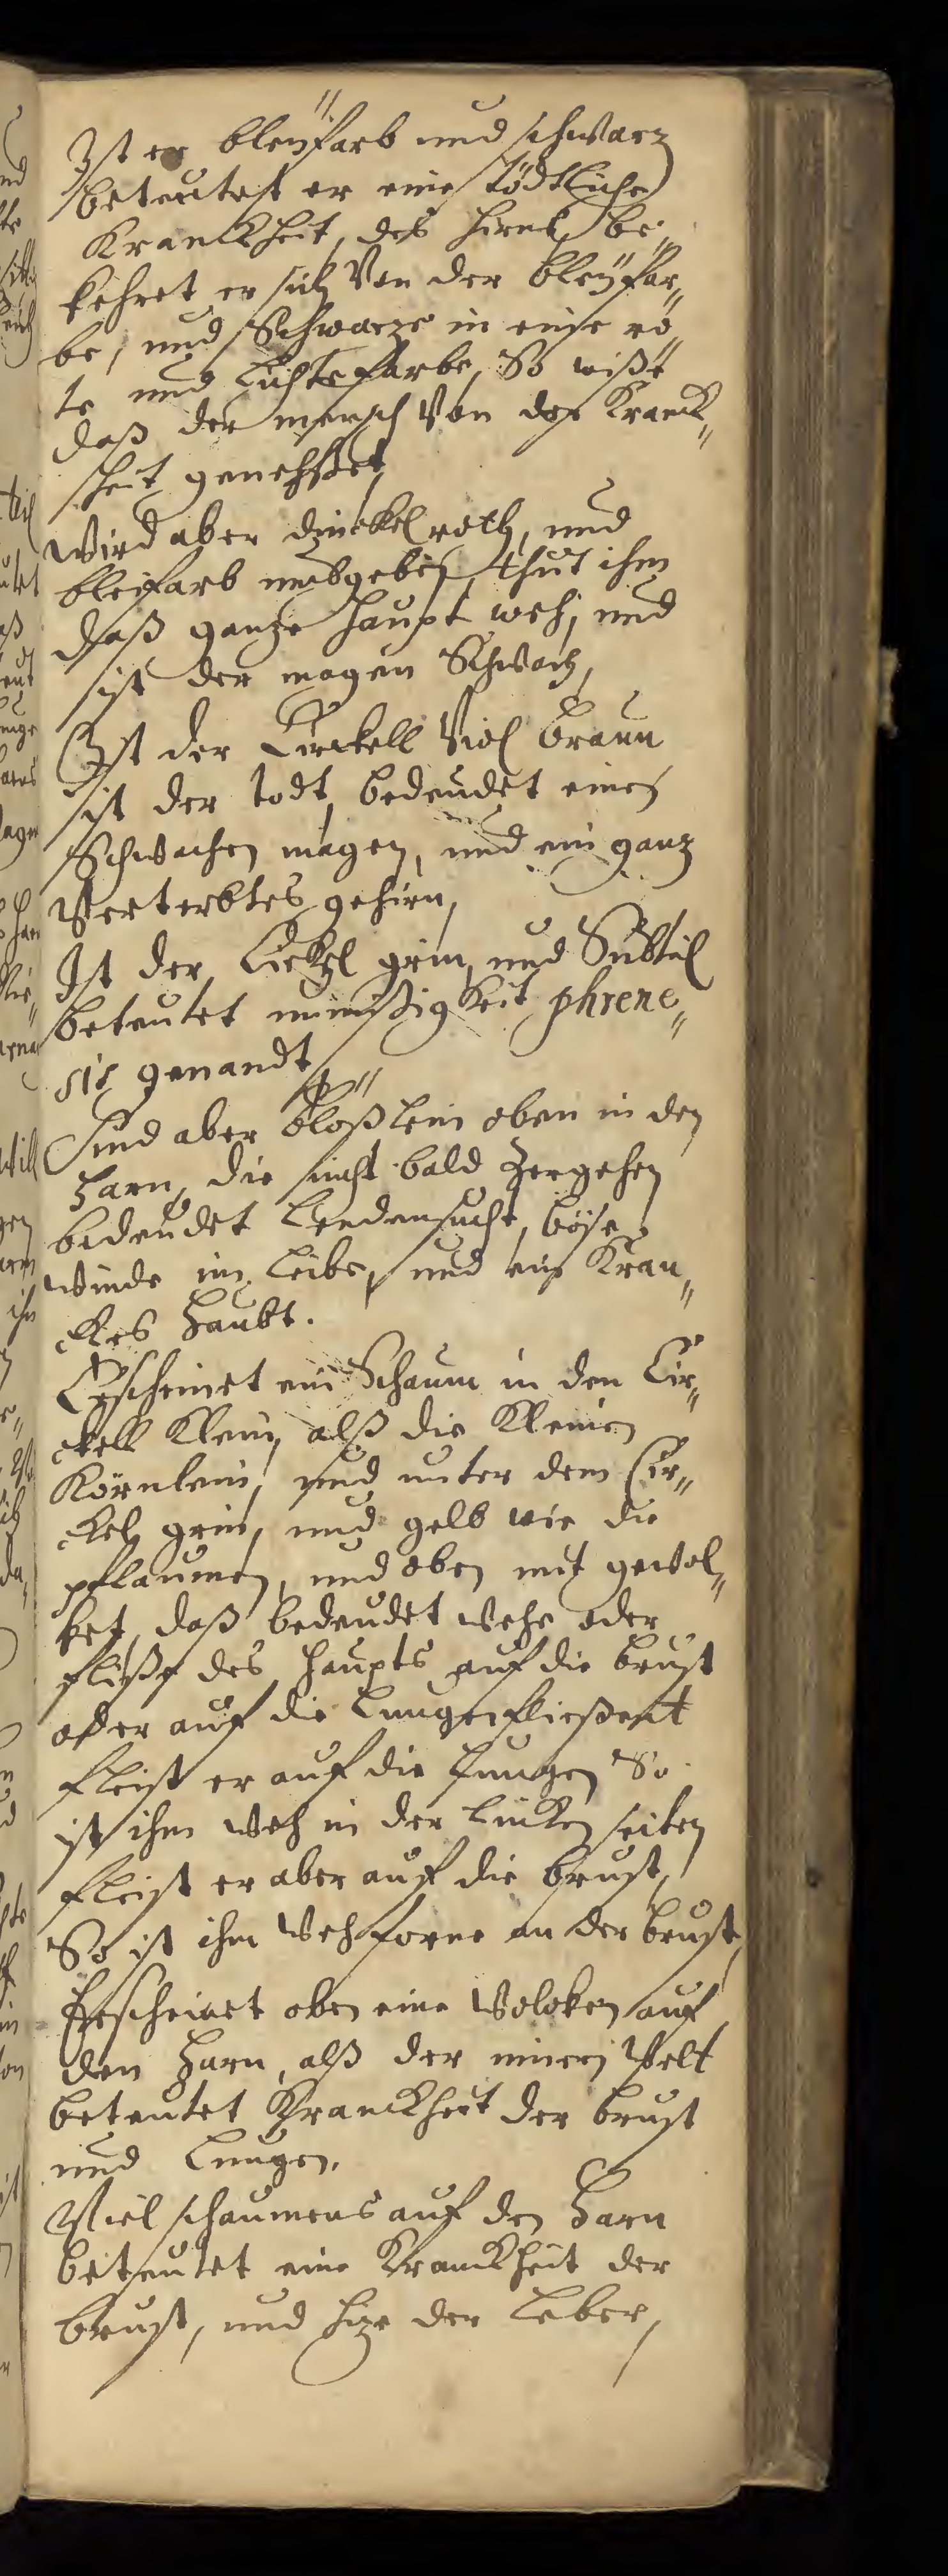 Ist er bleÿfarb und schwarz
beteutest er eine tödtliche
Kranckheit, des hirns, be„
kehret er sich von der bleÿfar„
be, und Schwarze in eine rö„
te und Lichte farbe, So wißt
daß der mensch von der Kranck„
heit genehset,
Wird aber dunckelroth, und
bleifarb umbgeben, thut ihm
daß ganze haupt weh, und
ist der magen Schwach,
Ist der Circkell Viol braun
ist der todt, bedeudet einen
Schwachen magen, und ein ganz
Verterbtes gehirn,
Ist der Circkel grin, und Subtil
beteutet unnsißigkeit phrene„
sis genandt
Sind aber bloßlein oben in den
Harn, die nicht bald zergehen
bedeudet Lendensucht, böse
winde im Leibe, und ein Kran„
ckes Haubt.
Erscheinet ein Schaum in den Cir„
ckell klein, alß die kleinen
Körnlein, und unter dem Cir„
ckel grin, und gelb wie die
pflaumen, und oben mit gewol„
ket, daß bedeudet wehe oder
fliße des Haupts auf die brust
oder auf die Lungen fließent
fleist er auf die Lungen So
ist ihm weh in der Lincken seiten
fleist er aber auf die brust,
So ist ihm Weh forne an der brust,
Erscheinet oben eine Wolcken auf
den Harn, alß der inneri Welt
beteutet Kranckheit der brust
und Lungen,
Viel schaumens auf den Harn
beteutet eine Kranckheit der
brust, und hize der Leber,